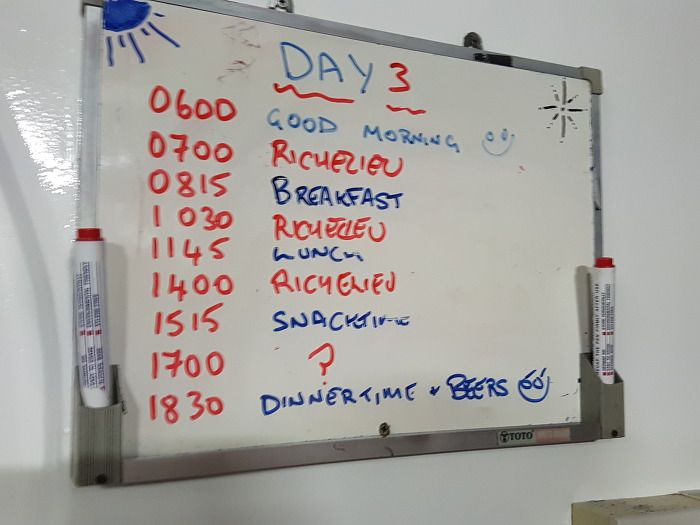 DAY 3
0600 GOOD MORNING
0700 RICHELIEU
0815 BREAKFAST
1030 RICHELIEU
1145 LUNCH
1400 RICHELIEU
1515 SNACKTIME
1700 ?
1830 DINNERTIME + BEERS
TOTO